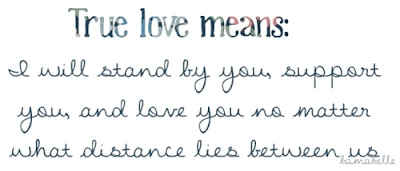 True love means:
I will stand by you, support
you, and love you no matter
what distance lies between us
kamabelle